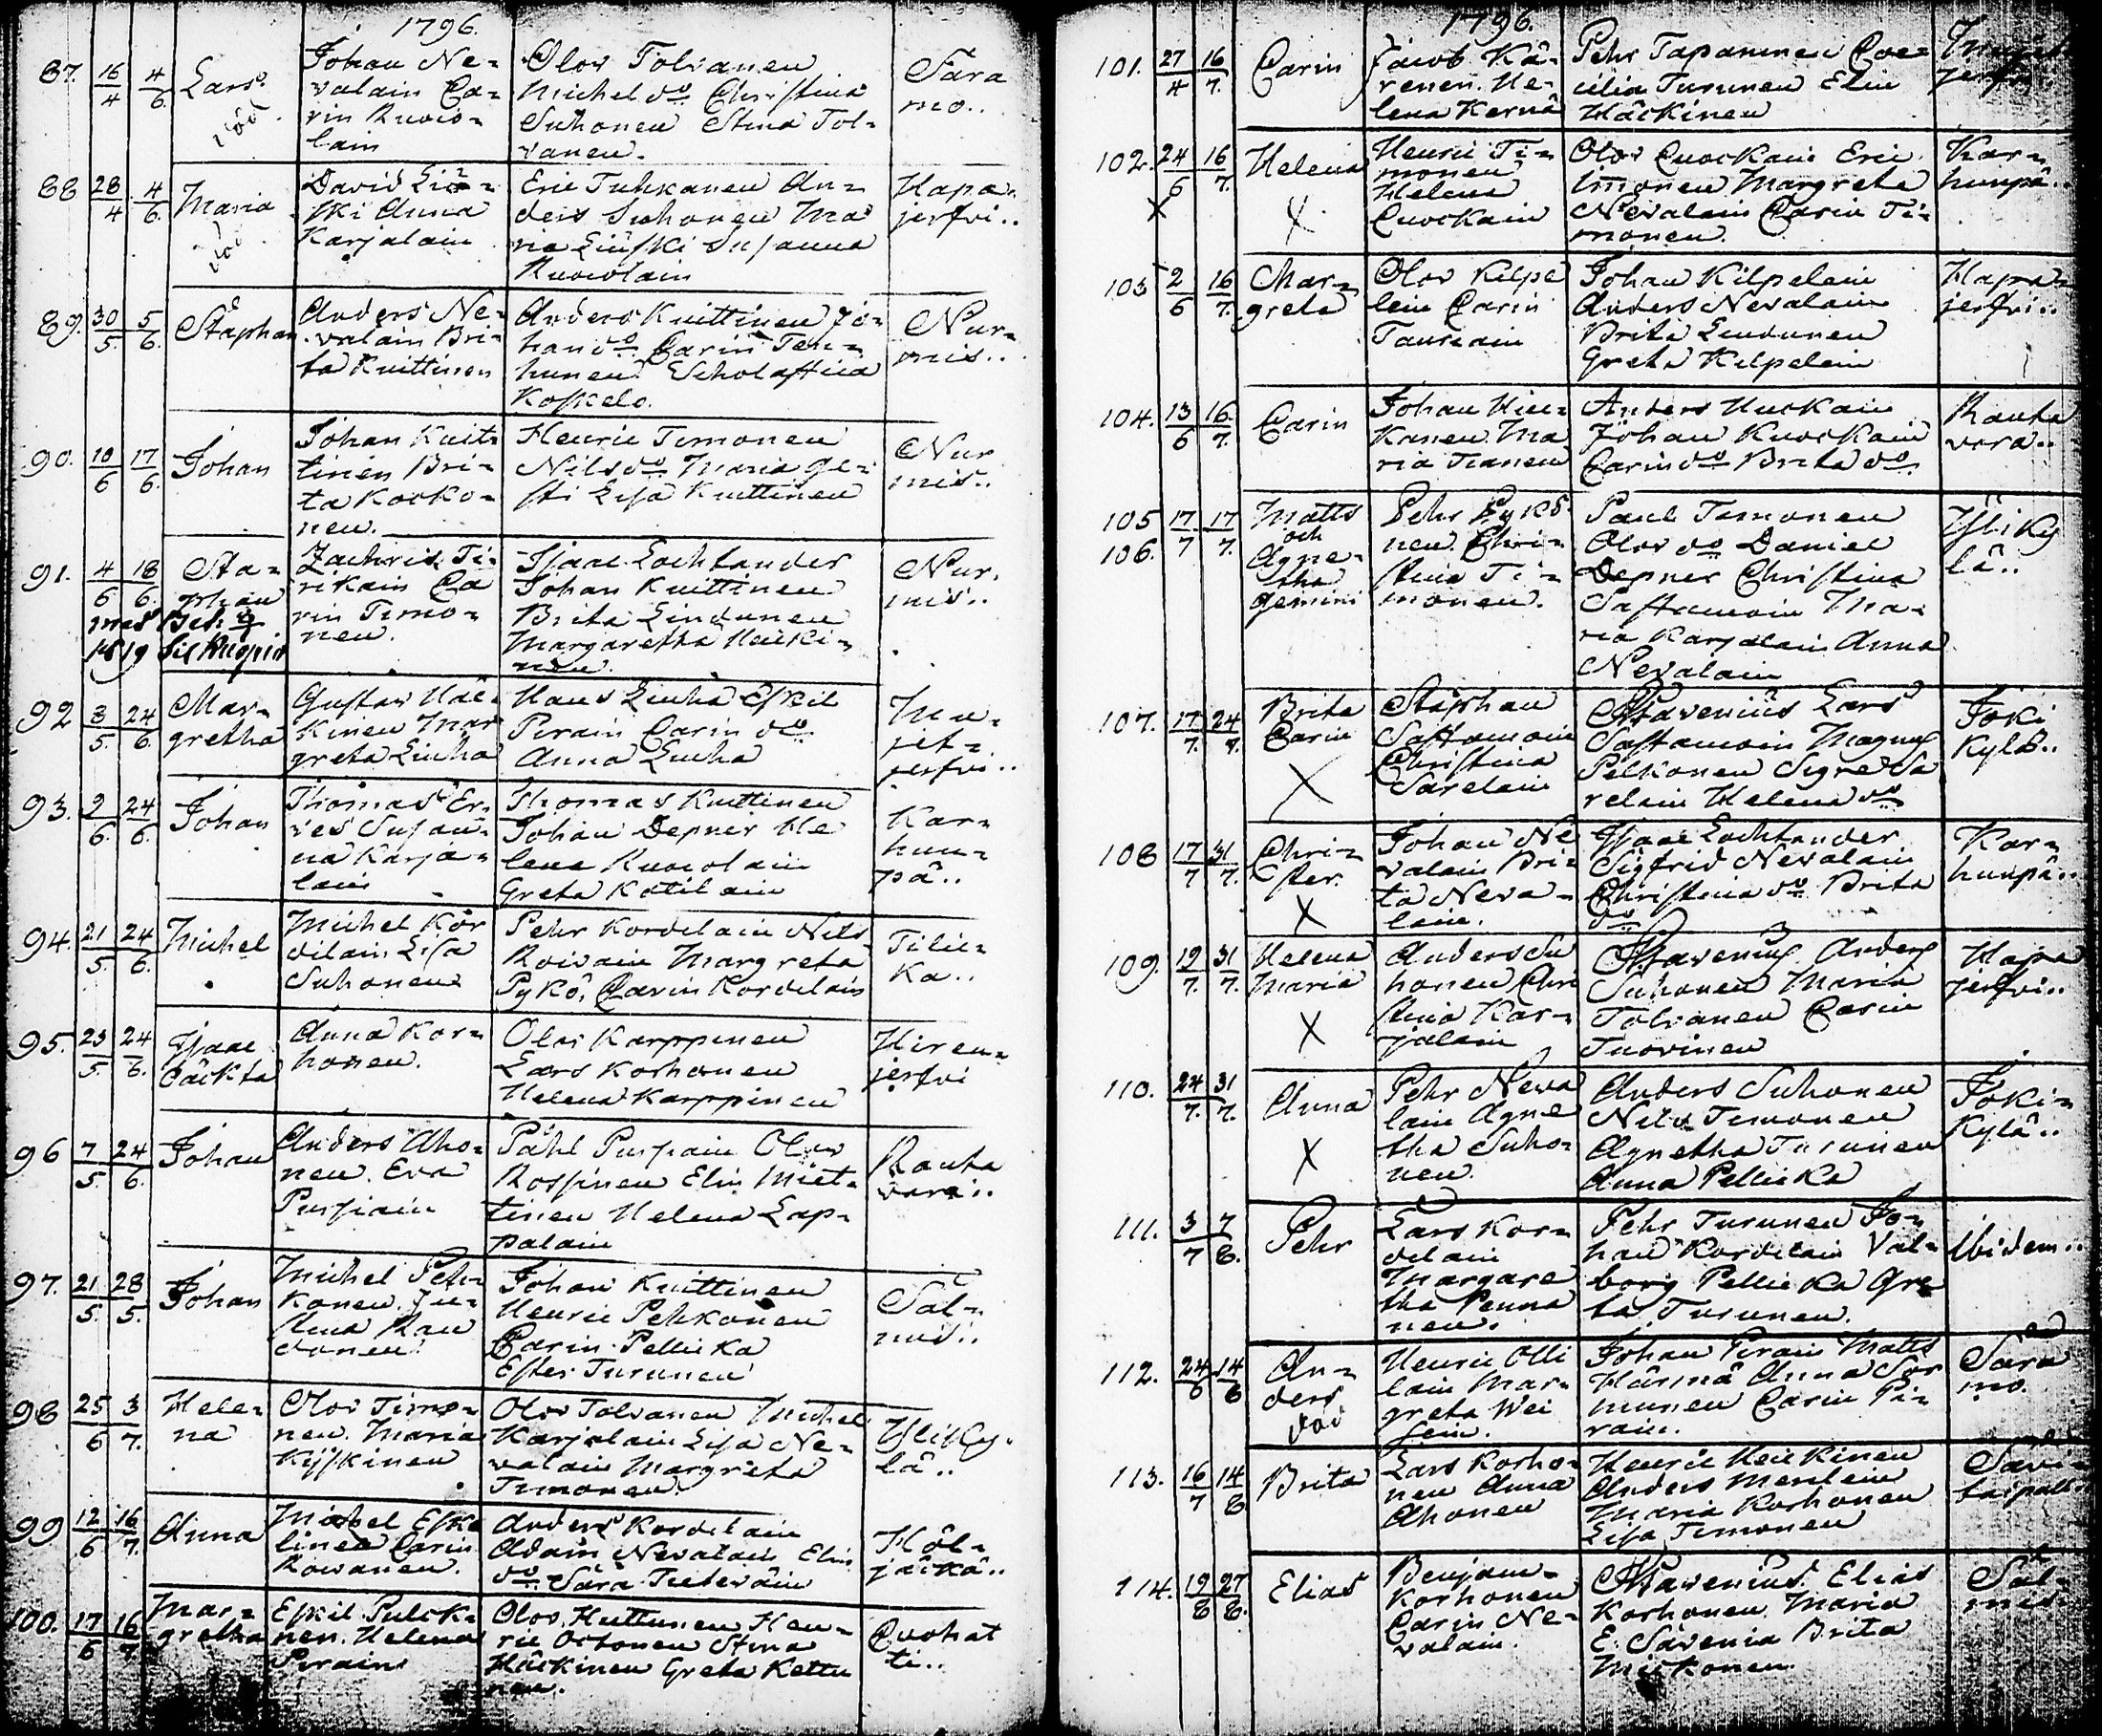 1796.
87. 16/4 4/6 Lars död
Johan Ne-
valain Ca-
rin Ruoio-
lain
Olov Tolvanen
Michel do Christina
Suhonen Stina Tol-
vanen.
Sara
mo..
88 28/4 4/6 Maria död
David
ski Anna
Karjalain
Eric Tuhkanen An-
ders Suhonen Ma
ria Susanna
Hapa-
jerfvi..
89. 30/5 5/6 Staphan
Anders Ne-
valain Bri-
ta Kuittinen
Anders Kuittinen Jo-
han do Carin Ten-
hunen Scholastica
Koskelo.
Nur-
mis..
90. 10/6 17/6 Johan
Johan Kuit-
tinen Bri-
ta Kocko-
nen.
Henric Timonen
Nils do Maria
Lisa Kuittinen
Nur
mis..
91. 4/6 18/6 Sta-
phan
med Bet.
1819 till Kuopio
Zachris Ti-
rikain Ca
rin Timo-
nen.
Isaac Lochtander
Johan Kuittinen
Brita Lindunen
Margaretha Heicki-
nen.
Nur-
mis..
92 3/5 24/6 Mar-
gretha
Gustav Häc-
kinen Mar
greta Linha
Hans Linha Eskil
Pirain Carin do
Anna Linha
Mu-
jet-
jerfvi..
93. 9/6 24/6 Johan
Thomas Er-
ves Susan-
na Karja-
lain
Thomas Kuittinen
Johan Depner He
lena
Greta Kötilain
Kar-
hun-
pä..
94. 21/5 24/6 Michel
Michel Kor
dilain Lisa
Suhonen
Pehr Kordelain Nils
Roivain Margreta
Pykö, Carin Kordelain
Tilic-
ka..
95. 23/5 24/6 Isaac
oäckta
Anna Kor-
honen.
Olov Karppinen
Lars Korhonen
Helena Karppinen
Hiren-
jerfvi
96 7/5 24/6 Johan
Anders Aho-
nen. Eva
Pursiain
Påhl Pursiain Olov
Rossinen Elin Miet-
tinen Helena Lap-
palain
Rauta
vara..
97. 21/5 28/5 Johan
Michel Peh-
konen.
stina Rau
danen.
Johan Kuittinen
Henric Pehkonen
Carin Pellicka
Ester Turunen
Sal-
mis..
98 25/6 3/7 Hele-
na
Olov Timo-
nen. Maria
Kyyskinen
Olov Tolvanen Michel
Karjalain Lisa Ne-
valain Margreta
Timonen.
Yliky-
lä..
99 12/6 16/7 Anna
Michel Eske
linen Carin
Rowanen.
Anders Kordelain
Adam Nevalain Elin
do Sara Tietevain
Höl-
jäckä..
100. 17/6 16/7 Mar-
gretha
Eskil Pulck-
nen. Helena
Pirain
Olov Huttunen Hen-
ric Ortonen Stina
Häckinen Greta Kettu
nen.
Quohat
ti..
1796.
101. 27/4 16/7 Carin
Jacob Kä-
renen. He-
lena Kernä
Pehr Tapaninen Coe-
cilia Turunen Elin
Häckinen
Mujet
jerfvi
102. 24/6 16/7 Helena
X X
Henric Ti-
monen
Helena
Cuockain
Olov Cuockain Eric
Timonen Margreta
Nevalain Carin Ti-
monen.
Kar-
hunpä..
103 2/6 16/7 Mar-
greta
Olov Kilpe
lein Carin
Tanscain
Johan Kilpelein
Anders Nevalain
Brita Lindunen
Greta Kilpelein
Hapa-
jerfvi..
104. 13/6 16/7 Carin
Johan Hin-
kanen. Ma
ria Ikanen
Anders Huckain
Johan Kuockain
Carin do Brita do
Rauta
vara..
105 17/7 17/7
106.
Matts
och
Agne-
tha
gemini
Pehr Pykö-
nen. Chri-
stina Ti-
monen.
Paul Timonen
Olov do Daniel
Depner Christina
Sastamoin Ma-
ria Karjalain Anna
Nevalain
Yliky
lä..
107. 17/7 24/7 Brita
Carin
X
Staphan
Sastamoin
Christina
Sarelain
Stavenius Lars
Sastamoin Magnus
Pelkonen Sigre Sa
relain Helena do
Joki
kylä..
108 17/7 31/7 Chri-
ster.
X
Johan Ne
valain Bri-
ta Neva-
lain.
Isaac Lochtander
Sigfrid Nevalain
Christina do Brita
do
Kar-
hunpä..
109. 19/7 31/7 Helena
Maria
X
Anders Su
honen Chri
stina Kar-
jalain
Stavenius Anders
Suhonen Maria
Tolvanen Carin
Tuovinen
Hapa
jerfvi..
110. 24/7 31/7 Anna
X
Pehr Neva
lain Agne
tha Suho-
nen.
Anders Suhonen
Nils Timonen
Agnetha Turunen
Anna Pellicka
Joki-
kylä..
111. 3/7 7/8 Pehr
Lars Kor-
delain
Margare
tha Penna
nen.
Pehr Turunen Jo-
han Kordelain Val-
borg Pellicka Gre
ta Turunen.
Ibidem..
112. 24/6 14/8 An-
ders
död
Henric Olli
lain Mar-
greta Wei
sein.
Johan Pirain Matts
Härmä Anna Sor
munen Carin Pi-
rain.
Sara
mo.
113. 16/7 14/8 Brita
Lars Korho-
nen Anna
Ahonen
Henric Heickinen
Anders Menlein
Maria Korhonen
Lisa Timonen
Savi-
taipall..
114. 19/8 27/8 Elias
Benjam-
Korhonen
Carin Ne-
valain.
Stavenius. Elias
Korhonen Maria
E. Savenia Brita
Mickonen.
Sal-
mis..